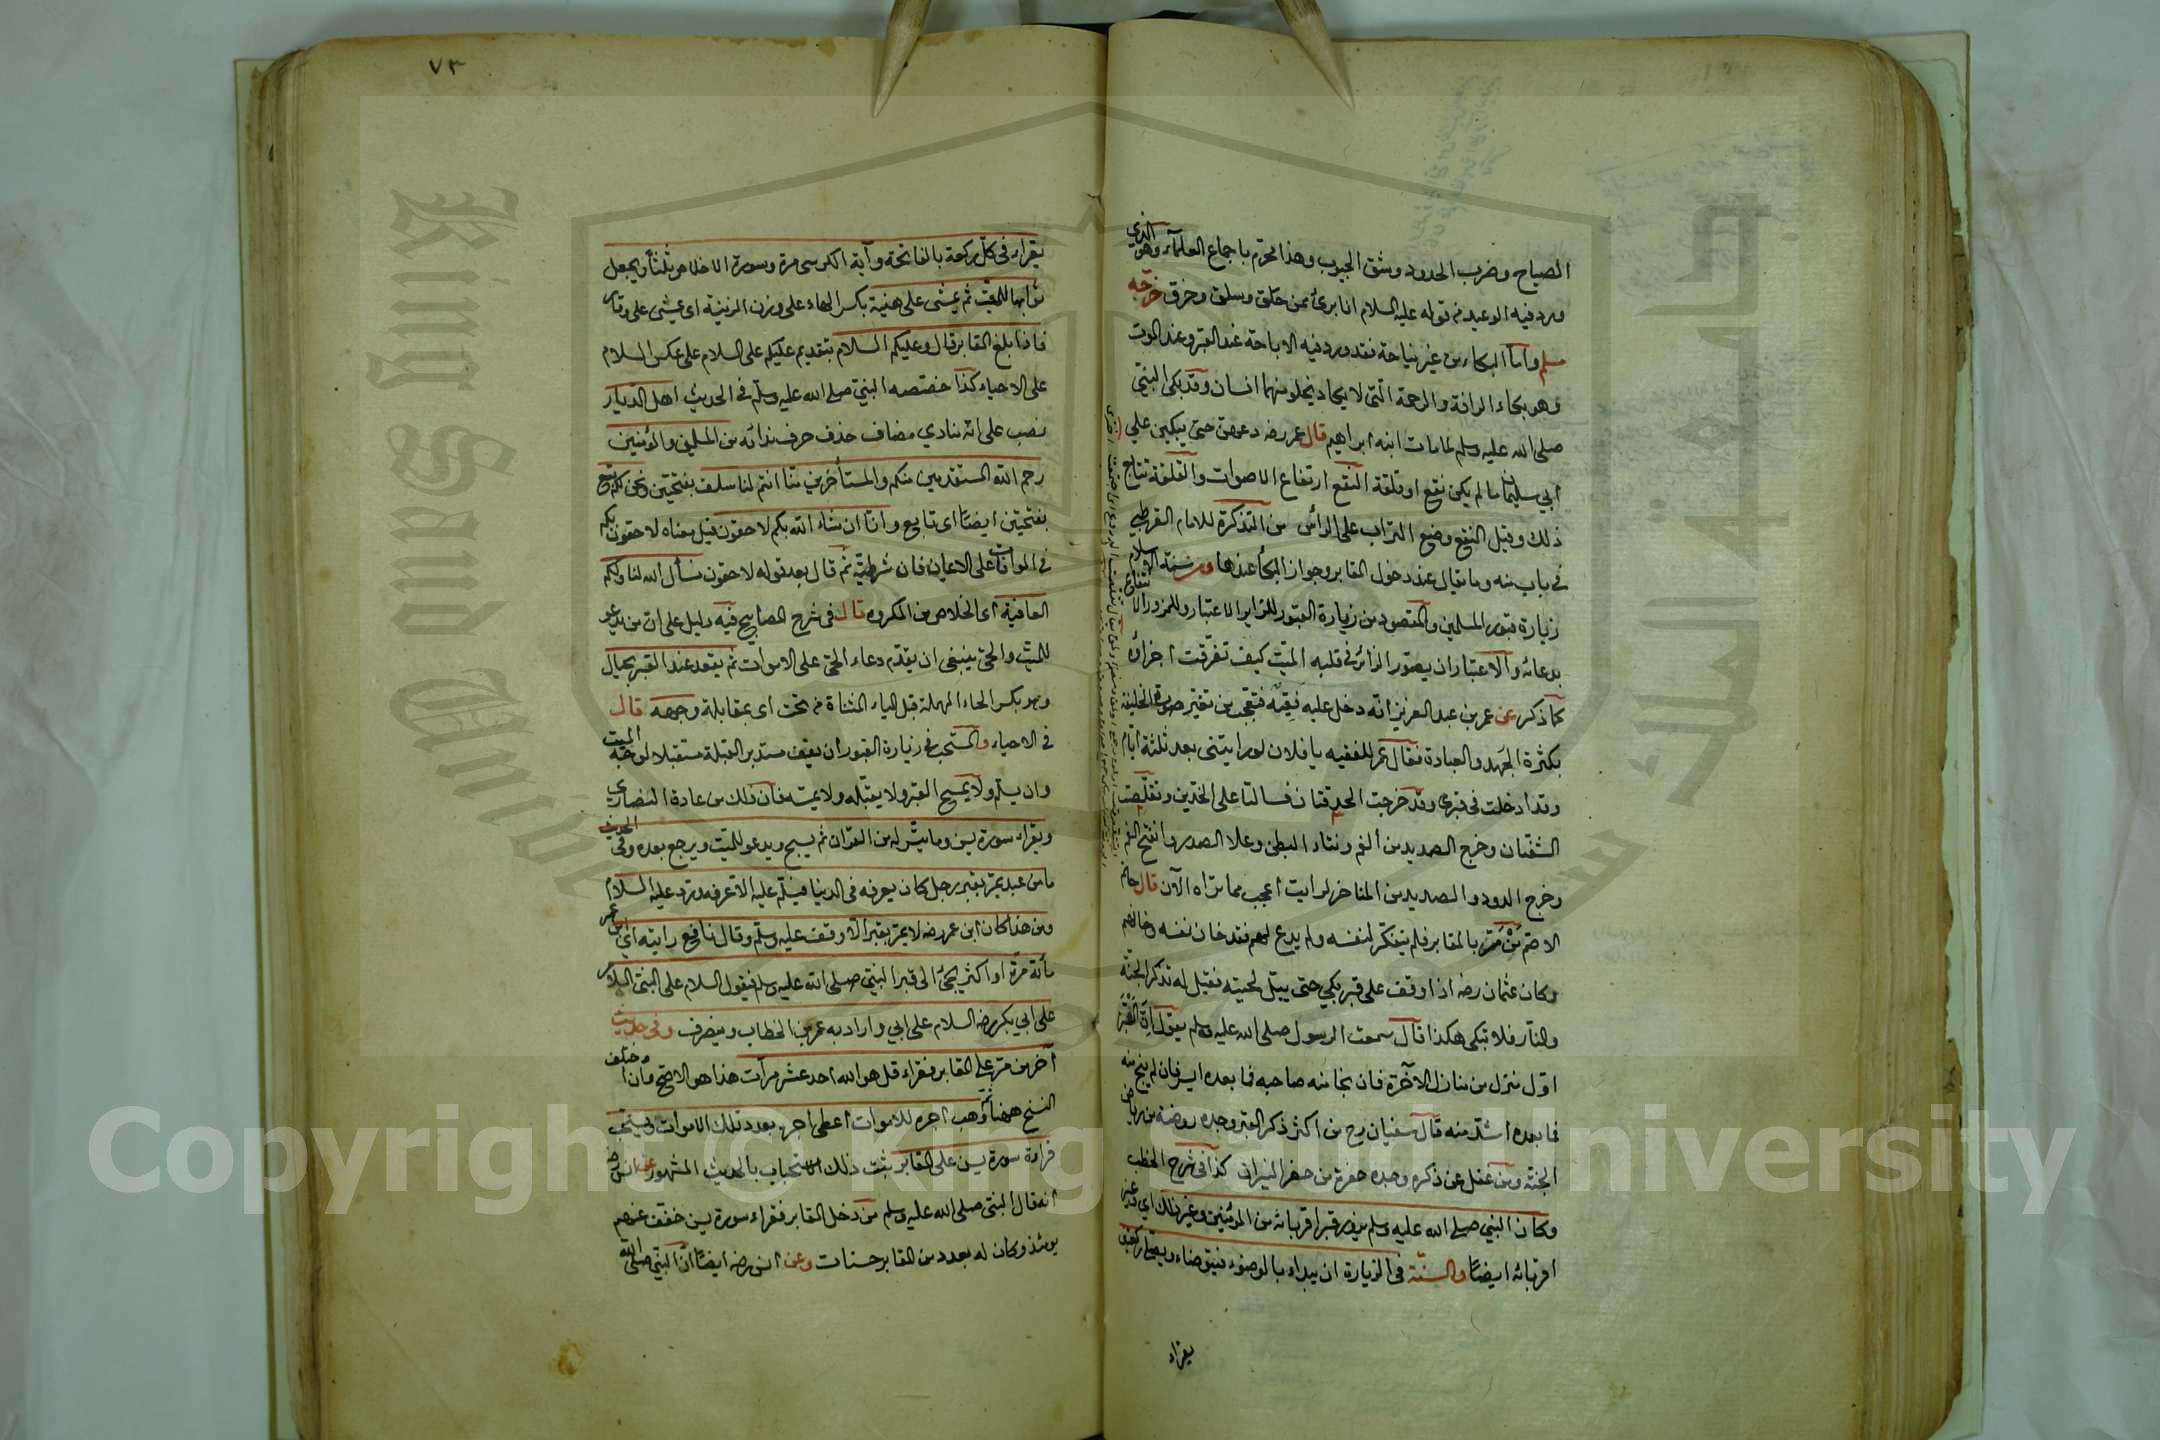 الصياح وضرب الخدود وشق الجيوب وهذا محرم باجماع العلمآء وهو الذي
ورد فيه الوعيد من قوله عليه السلام انا برئ ممن حلق وسلق وخرق خرّجه
مسلم وأما البكاء من غير نياحة فقد ورد فيه الاباحة عند القبر وعند الموت
وهو بكاء الرافة والرحمة التى لا يكاد يخلو منهما انسان وقد بكى النبي
صلى الله عليه وسلم لما مات ابنه ابراهيم قال عمر رضه دعهن حتى يبكين علي
أبي سليمان ما لم يكن نقع او لقلقة النقع ارتفاع الاصوات واللقلقة تتابع
ذلك وقيل النقع وضع التراب على الرأس من التذكرة للامام القرطبي
في باب منه وما يقال عند دخول المقابر وجواز البكأ عندها ومن سنة الاسلام
زيارة قبور المسلمين والمقصود من زيارة القبور للزاير الاعتبار وللمزور الانتفاع
بدعائه والاعتبار ان يصور الزائر في قلبه الميت كيف تفرقت اجزاؤه
كما ذكر عن عمر بن عبد العزيز انه دخل عليه فقيه فتعجب من تغير صورة الخليفة
بكثرة الجهد والعبادة فقال عمر للفقيه يا فلان لو رايتنى بعد ثلثة ايام
وقد ادخلت في قبرى وقد خرجت الحدقتان فسالتا على الخدين وتقلصت
الشفتان وخرج الصديد من الفم ونتاء البطن وعلا الصدر وانفتح الفم
وخرج الدود والصديد من المناخر لرايت اعجب مما تراه الآن قال حاتم
الاصم من مر بالمقابر فلم يتفكر لنفسه ولم يدع لهم فقد خان نفسه وخانهم
وكان عثمان رضه اذا وقف على قبر بكي حتى يبتل لحيته فقيل له تذكر الجنة
والنار فلا تبكى هكذا قال سمعت الرسول صلى الله عليه وسلم يقول ان القبر
اول منزل من منازل الآخرة فان نجا منه صاحبه فما بعده ايسر فان لم ينج منه
فما بعده اشد منه قال سفيان رح من اكثر ذكر القبر وجده روضة من رياض
الجنة ومن غفل عن ذكره وجده حفرة من حفر النيران كذا في شرح الخطب
وكان النبي صلى الله عليه وسلم يزور قبر اقربائه من المؤمنين وغير ذلك اي وغير
اقربائه ايضا والسنة في الزيارة ان يبداء بالوضوء فيتوضاء ويصلى ركعتين
يقراء
٧٣
يقراء في كل ركعة بالفاتحة وآية الكرسى مرة وسورة الاخلاص ثلثا ويجعل
ثوابها للميت ثم يمشى على هنية بكسر الهاء على وزن الزينة اى يمشى على وقار
فاذا بلغ المقابر قال وعليكم السلام بتقديم عليكم على السلام على عكس السلام
على الاحياء كذا خصصه النبي صلى الله عليه وسلم في الحديث اهل الديار
نصب على انه منادي مضاف حذف حرف ندائه من المسلمين والمؤمنين
رحم الله المستقدمين منكم والمستأخرين منا انتم لنا سلف بفتحتين ونحن لكم تبع
بفتحتين ايضا اى تابع وانا ان شاء الله بكم لاحقون قيل معناه لاحقون بكم
في الموافات على الايمان فان شرطية ثم قال بعد قوله لاحقون نسأل الله لنا ولكم
العافية اى الخلاص من المكروه قال في شرح المصابيح فيه دليل على ان من يدعو
للميت والحى ينبغى ان يقدم دعاء الحى على الاموات ثم يقعد عند القبر بحيال
وهو بكسر الحاء المهملة قبل الياء المثناة من تحت اى بمقابلة وجهه قال
في الاحياء والمستحب في زيارة القبور ان يقف مستدبر القبلة مستقبلا لوجه الميت
وان يسلم ولا يمسح القبر ولا يقبله ولا يمسه فان ذلك من عادة النصارى
ويقراء سورة يس وما تيسر له من القرآن ثم يسبح ويدعو للميت ويرجع بعده وفي الحديث
ما من عبد يمر بقبر رجل كان يعرفه في الدنيا فيسلم عليه الا عرفه ورد عليه السلام
ومن هذا كان ابن عمر رضه لا يمر بقبر الا وقف عليه وسلم وقال نافع رايته اي ابن عمر
مأئة مرة او اكثر يجئ الى قبر النبي صلى الله عليه وسلم فيقول السلام على النبى السلام
على ابي بكر رضه السلام على ابي واراد به عمر بن الخطاب وينصرف وفي حديث
آخر من مر على المقابر فقراء قل هو الله احد عشر مرآت هذا هو الاصح وان اختلف
النسخ ههنا ثم وهب اجره للاموات اعطى اجره بعدد تلك الاموات ويستحب
قراءة سورة يس على المقابر يثبت ذلك الاستحباب بالحديث المشهور عن انس رضه
انه قال النبى صلى الله عليه وسلم من دخل المقابر فقراء سورة يس خفف عنهم
يومئذ وكان له بعدد من المقابر حسنات وعن انس رضه ايضا ان النبي صلى الله
King Saud University
Copyright © King Saud University